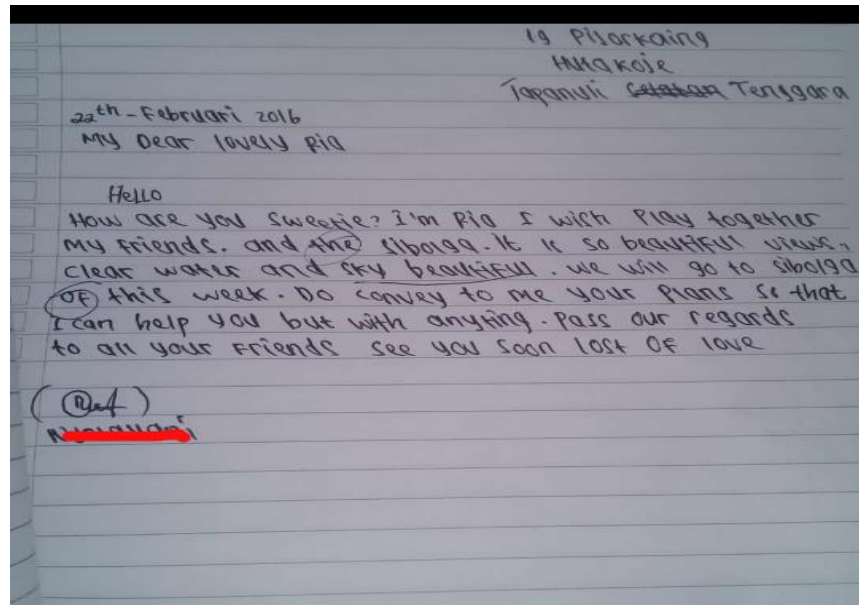 19 Pijorkoing
Hutakoje
Tapanuli Selatan Tenggara
22th - Februari 2016
My Dear lovely Ria
Hello
How are you sweetie? I'm Ria I wish Play together
my friends. and the sibolga. It is so beautiful views,
clear water and sky beautiful. we will go to sibolga
OF this week. Do convey to me your Plans so that
I can help you but with anything. Pass our regards
to all your Friends see you soon lost OF love